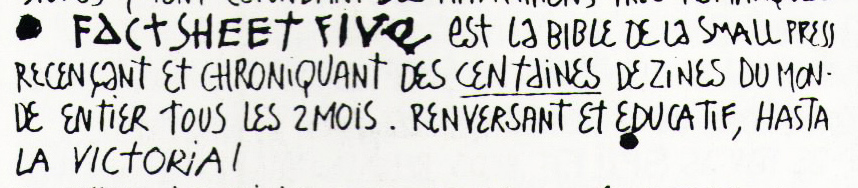 ● FACTSHEET FIVE est LA BIBLE DE LA SMALL PRESS
RECENÇANT Et CHRONIQUANT DES CENTAINES DE ZINES DU MON-
DE ENTIER TOUS LES 2 MOIS. RENVERSANT Et EDUCATIF, HASTA
LA VICTORIA!